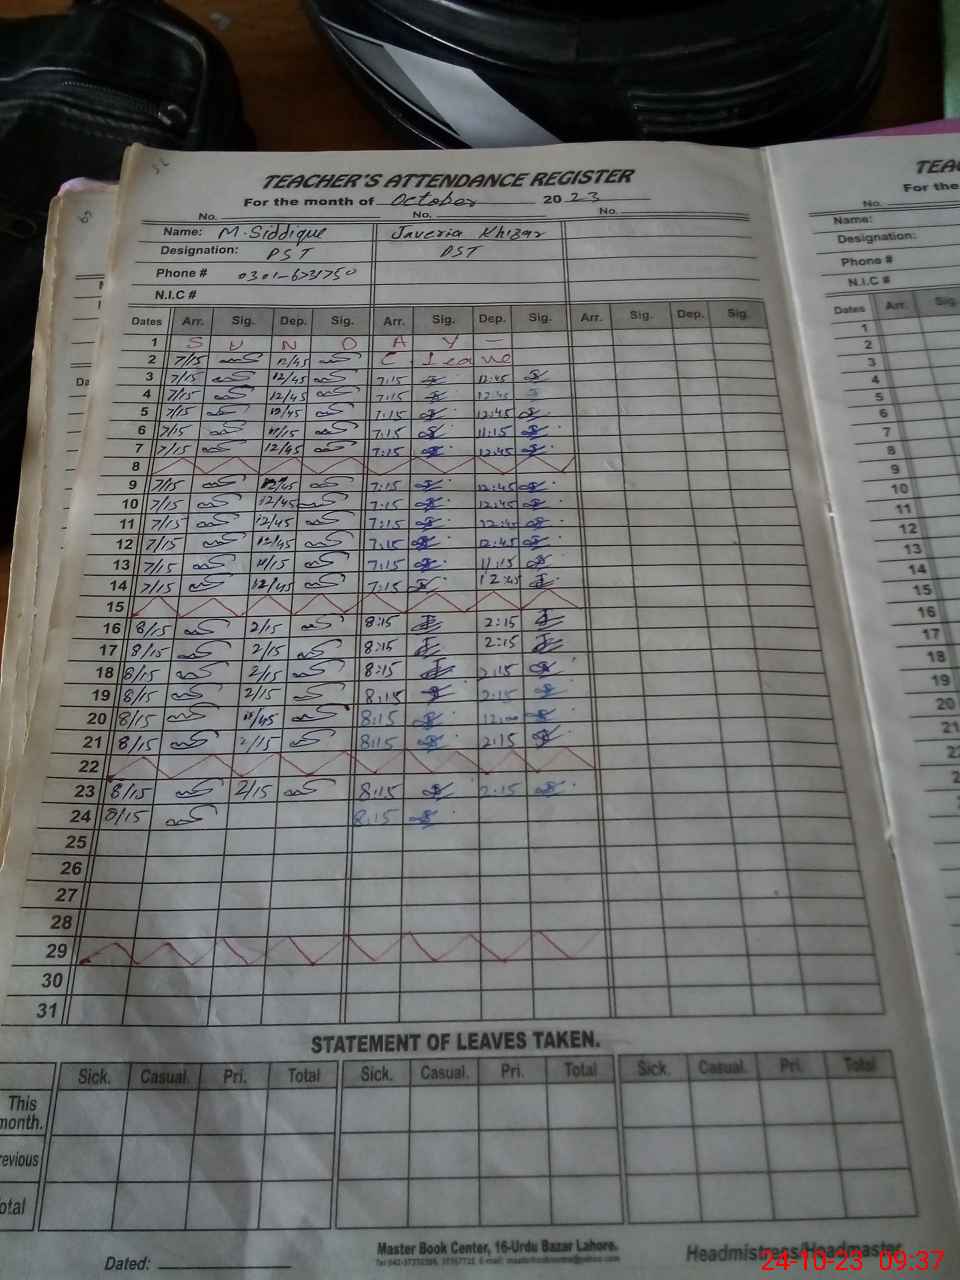 TEACHER'S ATTENDANCE REGISTER
For the month of October 2023
No. No. No.
Name: M.Siddique Javeria Khizar
Designation: PST PST
Phone #
N.I.C #
Dates Arr. Sig. Dep. Sig. Arr. Sig. Dep. Sig. Arr. Sig. Dep. Sig.
1 S U N D A Y -
2 7/15 12/45 C. Leave
3 7/15 12/45 7:15 12:45
4 7/15 12/45 7:15 12:45
5 7/15 12/45 7:15 12:45
6 7/15 11/15 7:15 11:15
7 7/15 12/45 7:15 12:45
8
9 7/15 12/45 7:15 12:45
10 7/15 12/45 7:15 12:45
11 7/15 12/45 7:15 12:45
12 7/15 12/45 7:15 12:45
13 7/15 11/15 7:15 11:15
14 7/15 12/45 7:15 12:45
15
16 8/15 2/15 8:15 2:15
17 8/15 2/15 8:15 2:15
18 8/15 2/15 8:15 2:15
19 8/15 2/15 8:15 2:15
20 8/15 8:15
21 8/15 2/15 8:15 2:15
22
23 8/15 2/15 8:15 2:15
24 8/15 8:15
25
26
27
28
29
30
31
STATEMENT OF LEAVES TAKEN.
Sick. Casual. Pri. Total Sick. Casual. Pri. Total Sick. Casual. Pri. Total
This
month.
revious
otal
Master Book Center, 16-Urdu Bazar Lahore.
Dated: Headmistress/Headmaster
TEAC
For the
No.
Name:
Designation:
Phone #
N.I.C #
Dates Arr. Sig.
1
2
3
4
5
6
7
8
9
10
11
12
13
14
15
16
17
18
19
20
21
24-10-23 09:37